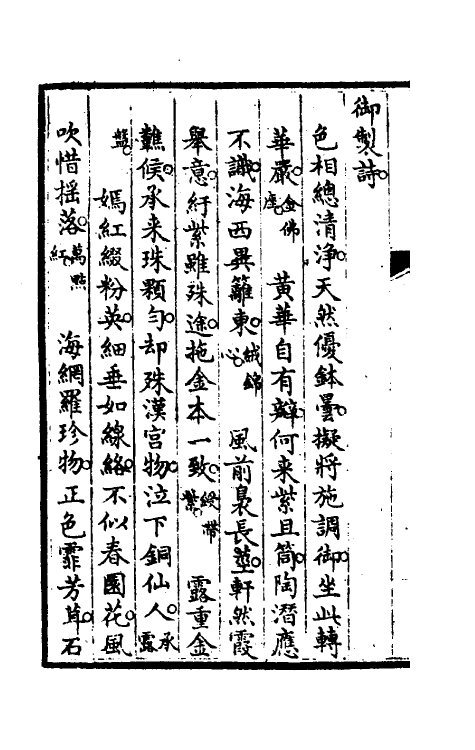 御製詩
色相總清淨天然優鉢曇擬將施調御坐此轉
華嚴金佛座 黃華自有辯何来紫且筒陶潛應
不識海西異籬東絨錦心 風前裊長莖軒然霞
舉意紆紫雖殊途拖金本一致綬帶紫 露重金
難候承来珠顆勻却殊漢宮物泣下銅仙人承露
盤 嫣紅綴粉英細垂如線絡不似春園花風
吹惜揺落萬點紅 海網羅珍物正色霏芳草石